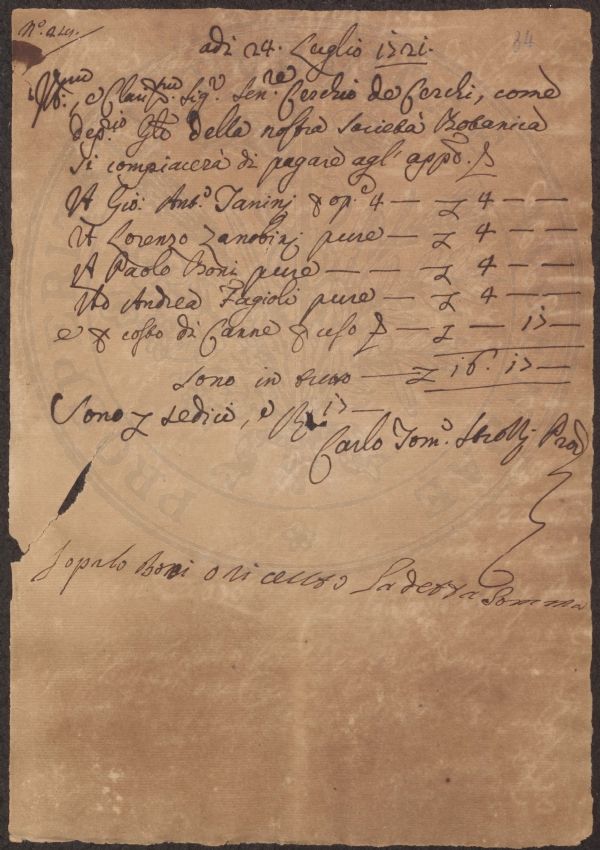 N.º 249.
34
adi 24. Luglio 1721.
Ill:mo, e Clariss:mo Sig.r Sen.re Cerchio de Cerchi, come
dep.rio Gñle della nostra Società Botanica
si compiacerà di pagare agl' app.º
A Gio: Ant.º Taninj p op.e 4 — 4 — —
A Lorenzo Zanobinj pure — 4 — —
A Paolo Boni pure — — 4 — —
Ad Andrea Fagioli pure — 4 — —
e p costo di Canne p uso — — 13 —
sono in tutto — 16. 13 —
Sono sedici, e 13 —
Carlo Tom.º Strozzj
Io paolo Boni o riceuto La detta Somma